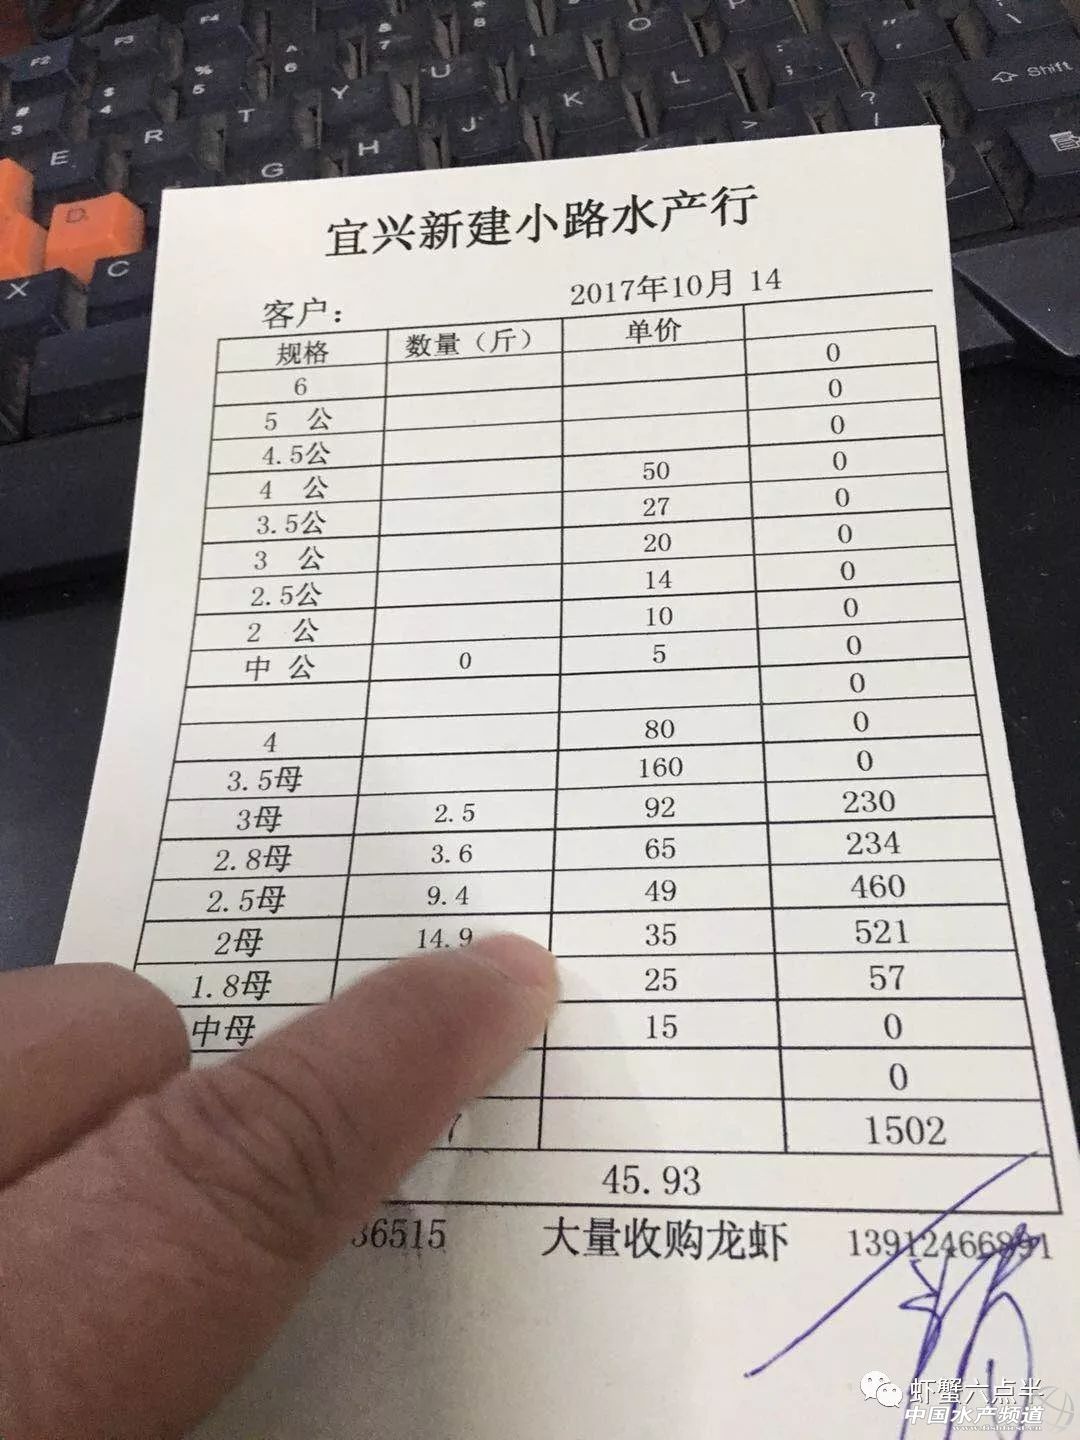 F2 F3
# 3 $ 4 % 5 ^ 6 & 7 * 8
E R T Y U I
D G H J K L : ;
X C > ? / Shift
宜兴新建小路水产行
客户： 2017年10月 14
规格 数量（斤） 单价
6 0
5 公 0
4.5公 0
4 公 50 0
3.5公 27 0
3 公 20 0
2.5公 14 0
2 公 10 0
中 公 0 5 0
0
4 80 0
3.5母 160 0
3母 2.5 92 230
2.8母 3.6 65 234
2.5母 9.4 49 460
2母 14.9 35 521
1.8母 25 57
中母 15 0
0
7 1502
45.93
36515 大量收购龙虾 13912466891
虾蟹六点半
中国水产频道